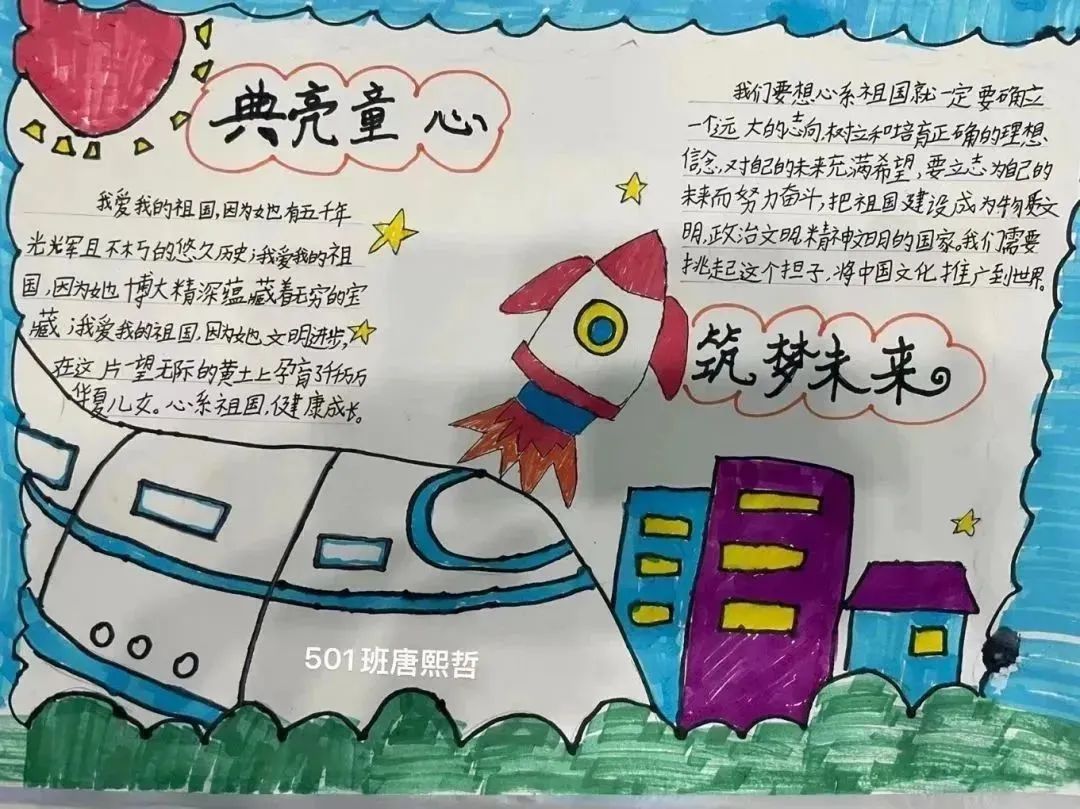 典亮童心
我爱我的祖国,因为她有五千年
光辉且不朽的悠久历史;我爱我的祖
国,因为她博大精深蕴藏着无穷的宝
藏;我爱我的祖国,因为她文明进步,
在这片一望无际的黄土上孕育了千万万
华夏儿女。心系祖国,健康成长。
我们要想心系祖国就一定要确立
一个远大的志向,树立和培育正确的理想
信念,对自己的未来充满希望,要立志为自己的
未来而努力奋斗,把祖国建设成为物质文
明,政治文明,精神文明的国家。我们需要
挑起这个担子,将中国文化推广到世界。
筑梦未来
501班唐熙哲